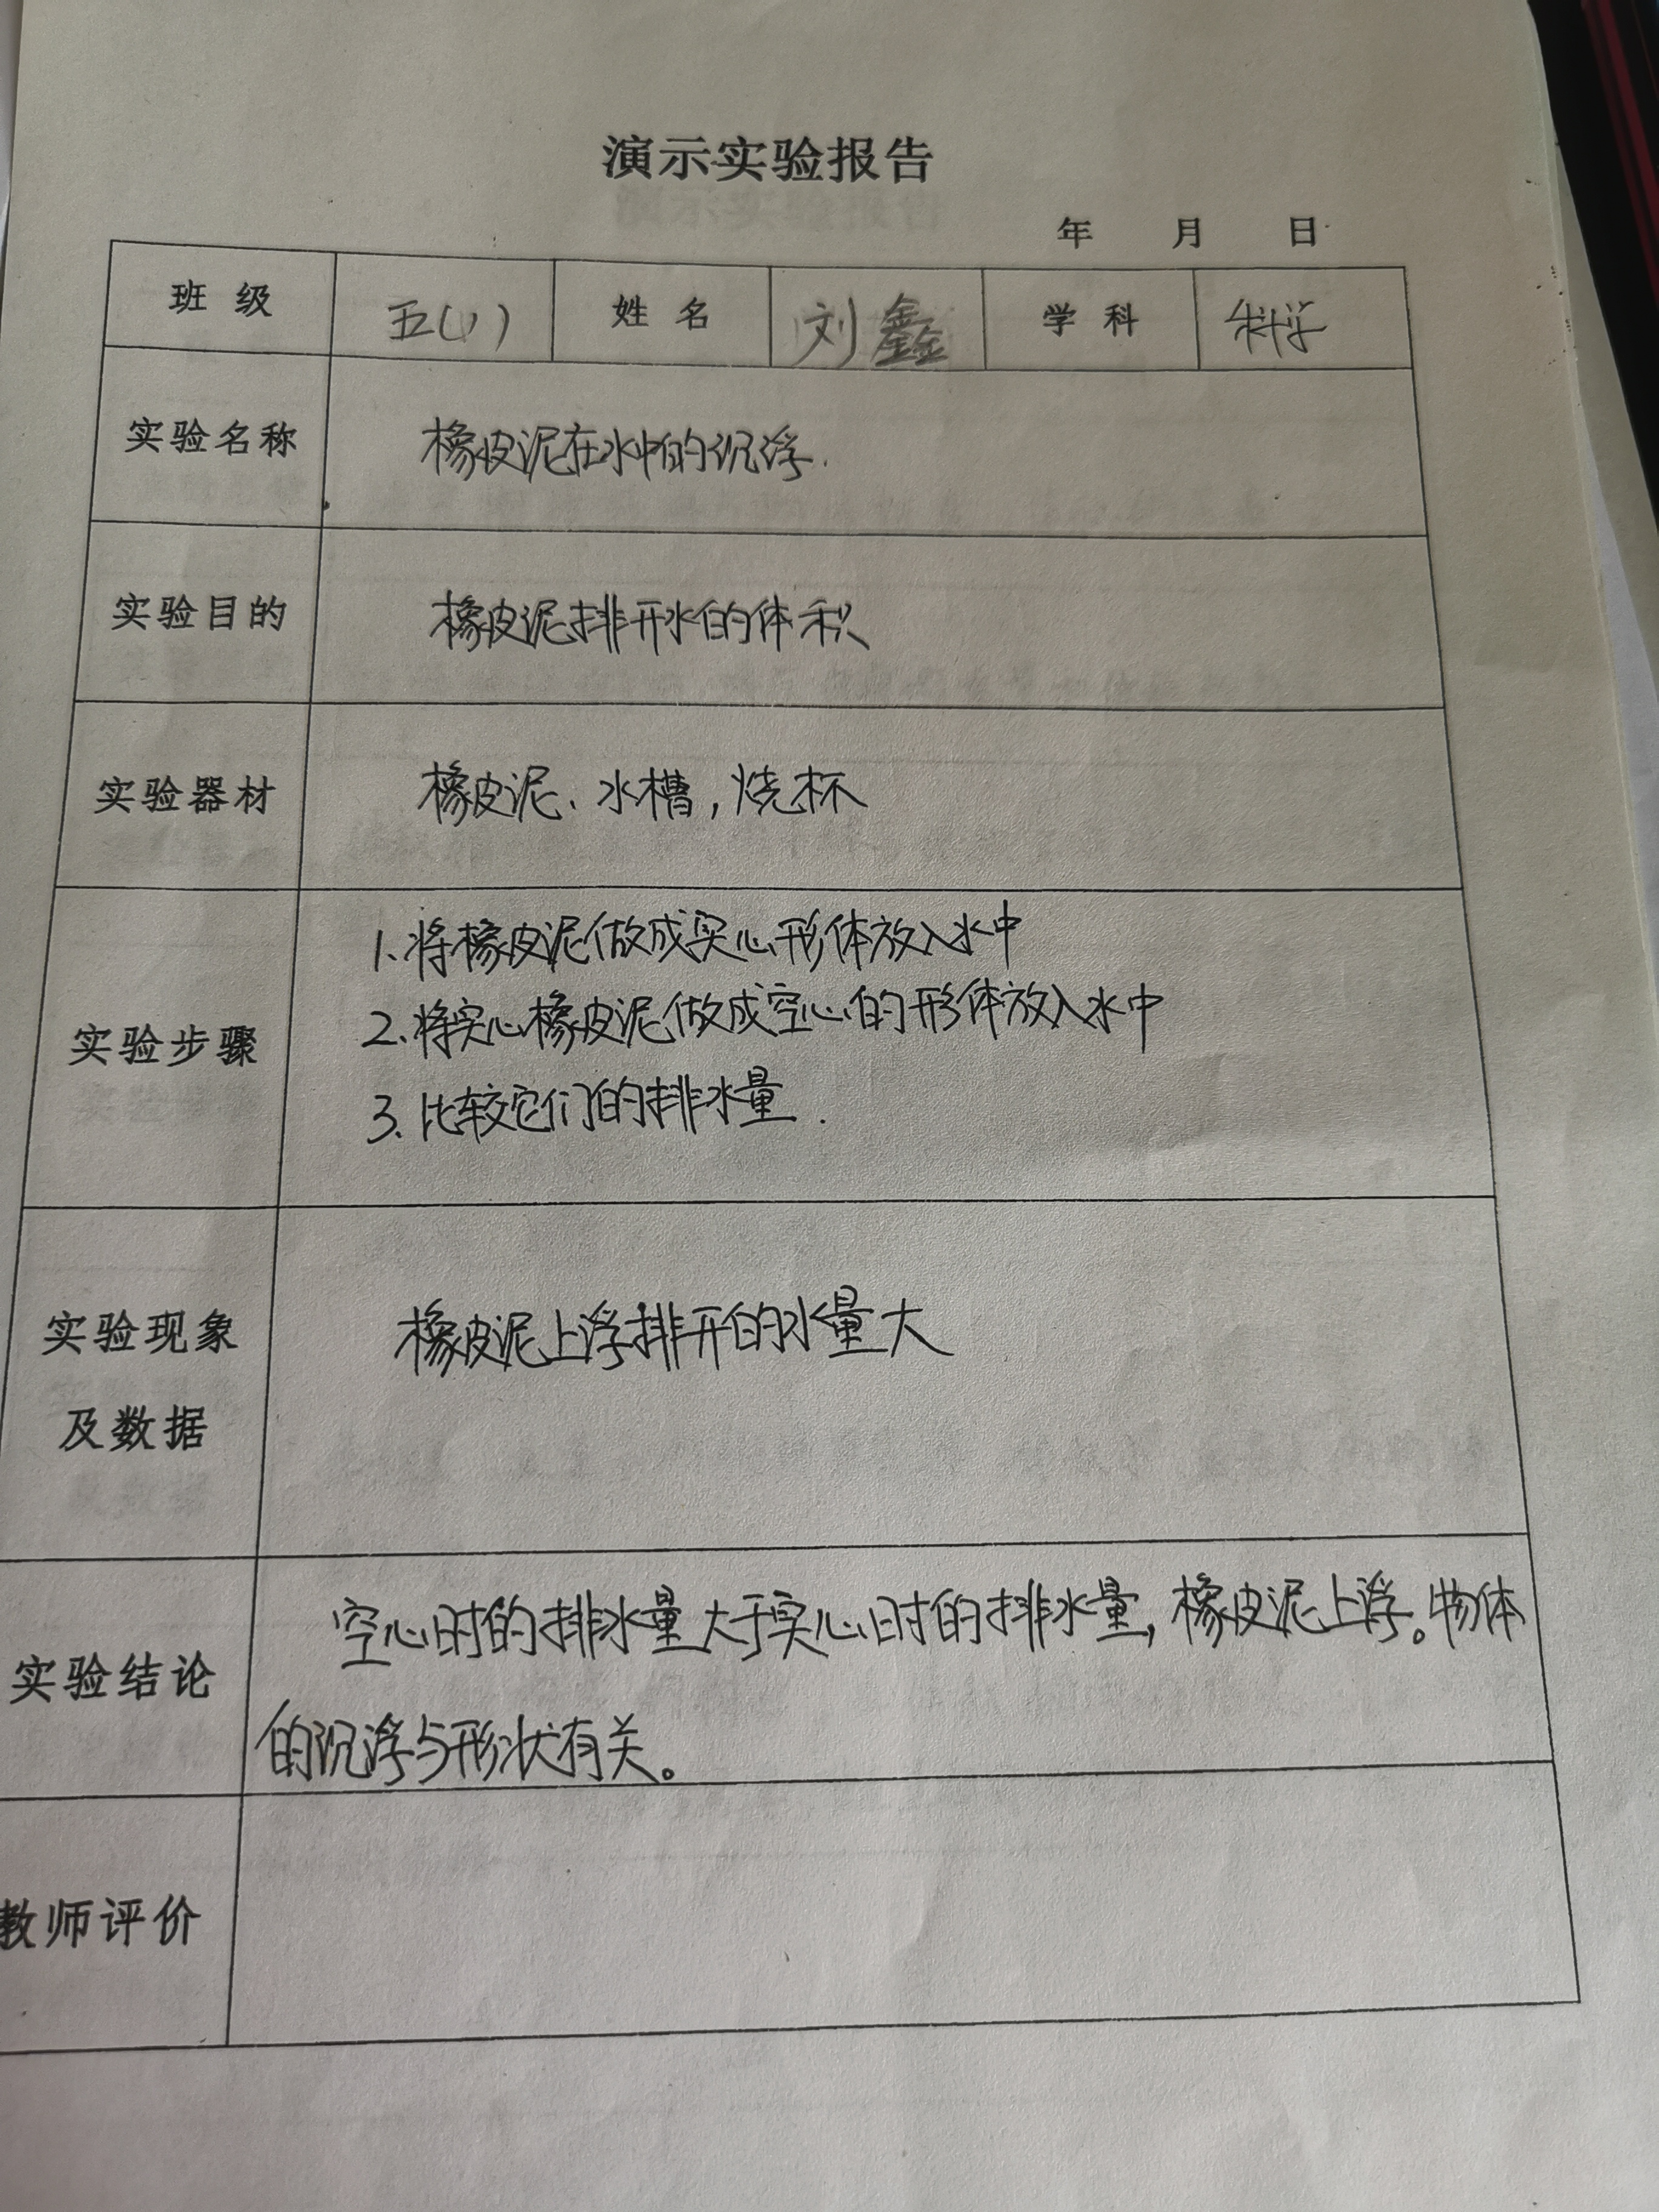 演示实验报告
年 月 日
班级 五(1) 姓名 刘鑫 学科 科学
实验名称 橡皮泥在水中的沉浮.
实验目的 橡皮泥排开水的体积
实验器材 橡皮泥、水槽,烧杯
实验步骤
1.将橡皮泥做成实心形体放入水中
2.将实心橡皮泥做成空心的形体放入水中
3.比较它们的排水量.
实验现象
及数据
橡皮泥上浮排开的水量大
实验结论
空心时的排水量大于实心时的排水量,橡皮泥上浮。物体
的沉浮与形状有关。
教师评价